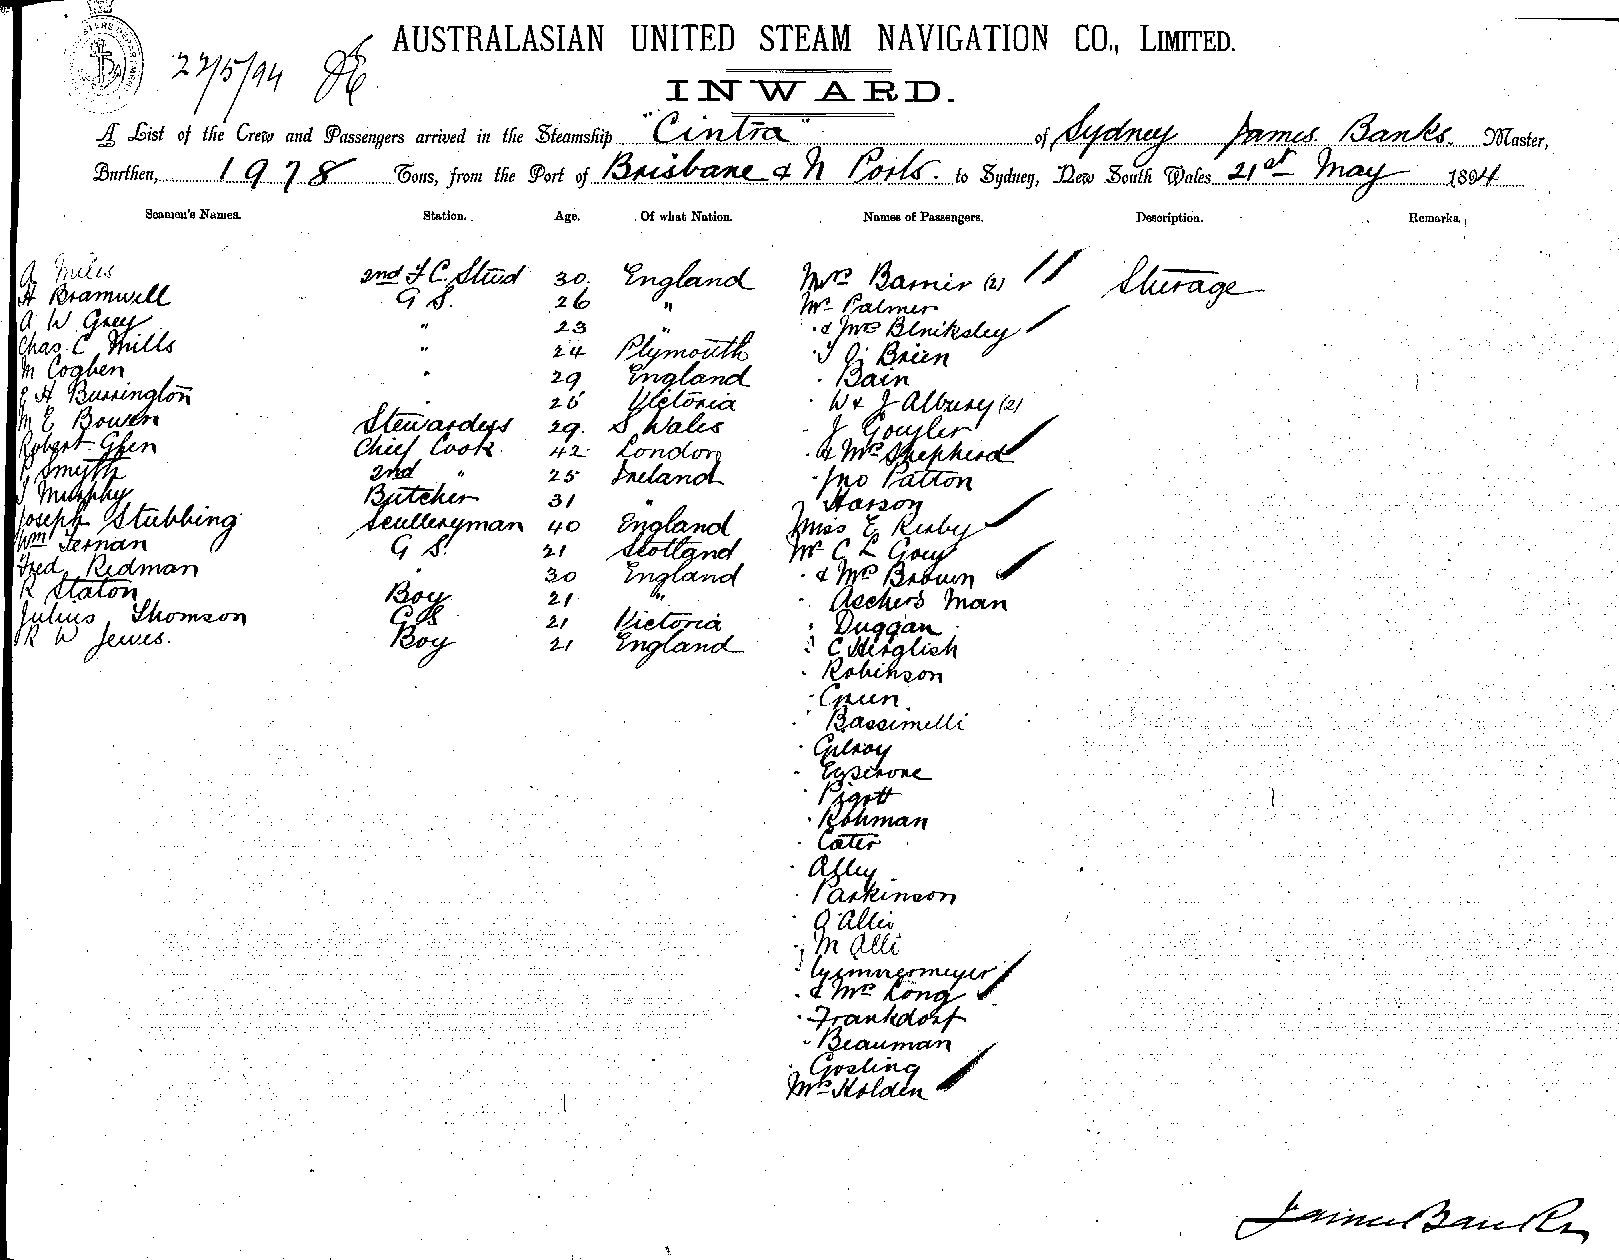 AUSTRALASIAN UNITED STEAM NAVIGATION CO., LIMITED.
22/5/94
INWARD.
A List of the Crew and Passengers arrived in the Steamship "Cintra" of Sydney James Banks. Master,
Burthen, 1978 Tons, from the Port of Brisbane & N Ports. to Sydney, New South Wales 21st May 1894
Seamen's Names. Station. Age. Of what Nation. Names of Passengers. Description. Remarks.
A Miles 2nd F C Stud 30. England Mrs Barrier (2) Sturage
H Bramwell G S. 26 " Mr Palmer
A W Grey " 23 " " & Mrs Blniksley
Chas. C Mills " 24 Plymouth " J O'Brien
M Coghen " 29 England " Bain
E H Burrington " 26 Victoria " W & J Albury (2)
M E Bowen Stewardess 29. S. Wales " J Gouyler
Robert Glen Chief Cook 42 London " & Mrs Shepherd
P Smyth 2nd " 25 Ireland " Jno Patton
J Murphy Butcher 31 " " Harson
Joseph Stubbing Sculleryman 40 England Miss E Kirby
Wm Fernan G S. 21 Scotland Mr C L Grey
Fred Redman " 30 England " & Mrs Brown
R Staton Boy 21 " " Aschers Man
Julius Thomson G S 21 Victoria " Duggan
R W Jewes. Boy 21 England " C Herglish
" Robinson
" Green
" Bassimelli
" Gilroy
" Pigott
" Rohman
" Cater
" Alley
" Parkinson
" A Allis
" M Alli
" & Mrs Long
" Frankdorf
" Beauman
" Gosling
Mrs Holden
James Banks